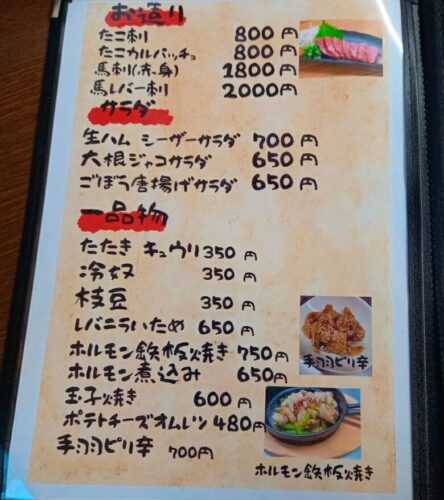 お造り
たこ刺 800円
たこカルパッチョ 800円
馬刺(赤身) 1800円
馬レバー刺 2000円
サラダ
生ハム シーザーサラダ 700円
大根ジャコサラダ 650円
ごぼう唐揚げサラダ 650円
一品物
たたき キュウリ 350円
冷奴 350円
枝豆 350円
レバニラいため 650円
ホルモン鉄板焼き 750円
ホルモン煮込み 650円
玉子焼き 600円
ポテトチーズオムレツ 480円
手羽ピリ辛 700円
手羽ピリ辛
ホルモン鉄板焼き